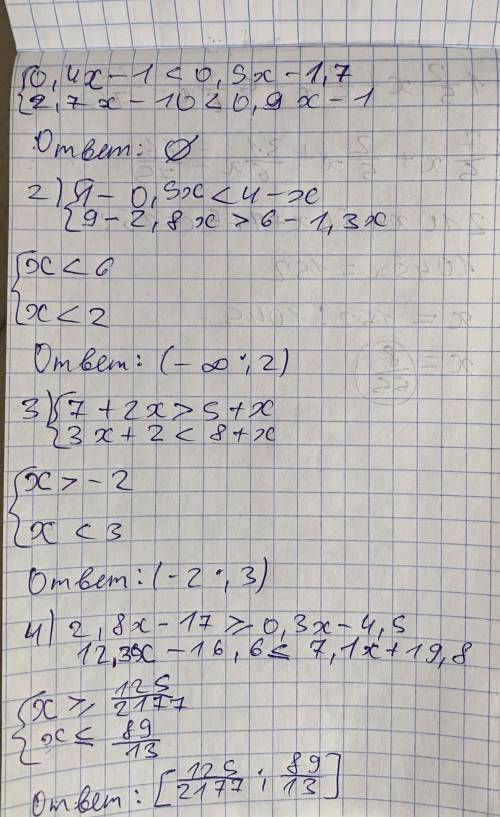 {0,4x-1<0,5x-1,7
{2,7x-10<0,9x-1
Ответ: ∅
2) {1-0,5x<4-x
{9-2,8x>6-1,3x
{x<6
x<2
Ответ: (-∞;2)
3) {7+2x>5+x
{3x+2<8+x
{x>-2
x<3
Ответ: (-2;3)
4) 2,8x-17⩾0,3x-4,5
12,3x-16,6≤7,1x+19,8
{x⩾125/2177
x≤89/13
Ответ: [125/2177;89/13]